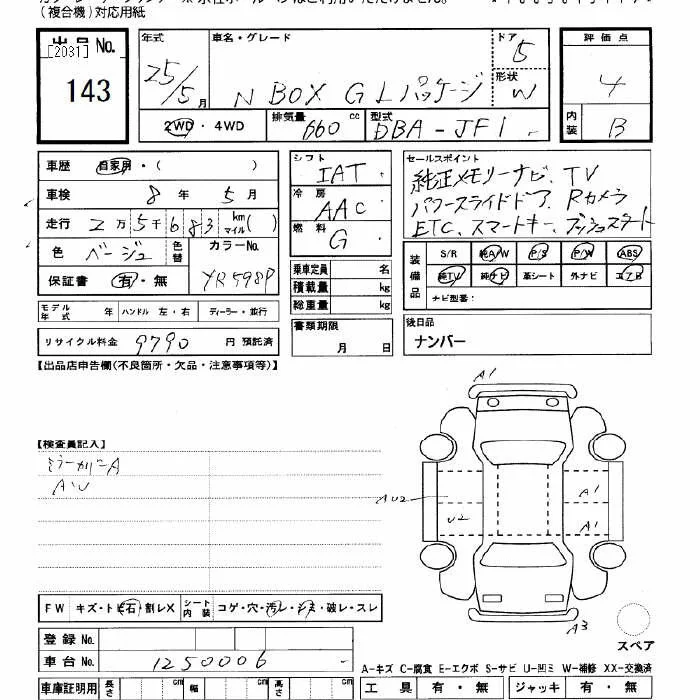 (複合機)対応用紙
出品No.
[2031]
143
年式
25/5月
車名・グレード
N BOX G Lパッケージ
ドア 5
形状 W
評価点
4
内装 B
2WD・4WD
排気量 660 cc
型式 DBA-JF1
車歴 自家用・( )
車検 8年 5月
走行 2万5千683 km マイル( )
色 ベージュ 色替 カラーNo.
YR598P
保証書 有・無
シフト IAT
冷房 AAC
燃料 G
セールスポイント
純正メモリーナビ、TV
パワースライドドア、Rカメラ
ETC、スマートキー、プッシュスタート
装備品 S/R 純A/W P/S P/W ABS
純TV 純ナビ 革シート 外ナビ エアB
ナビ型番:
乗車定員 名
積載量 kg
総重量 kg
モデル年式 年 ハンドル 左・右 ディーラー・並行
書類期限
月 日
後日品
ナンバー
リサイクル料金 9790 円 預託済
【出品店申告欄(不良箇所・欠品・注意事項等)】
A1
【検査員記入】
ミラーカバーA
AU
AU2
A1
U2
A1
A3
スペア
FW キズ・ト石・割レX シート内装 コゲ・穴・汚レ・キズ・破レ・スレ
登録No.
車台No. 1250006
A-キズ C-腐食 E-エクボ S-サビ U-凹ミ W-補修 XX-交換済
車庫証明用 長さ cm 幅 cm 高さ cm
工具 有・無 ジャッキ 有・無